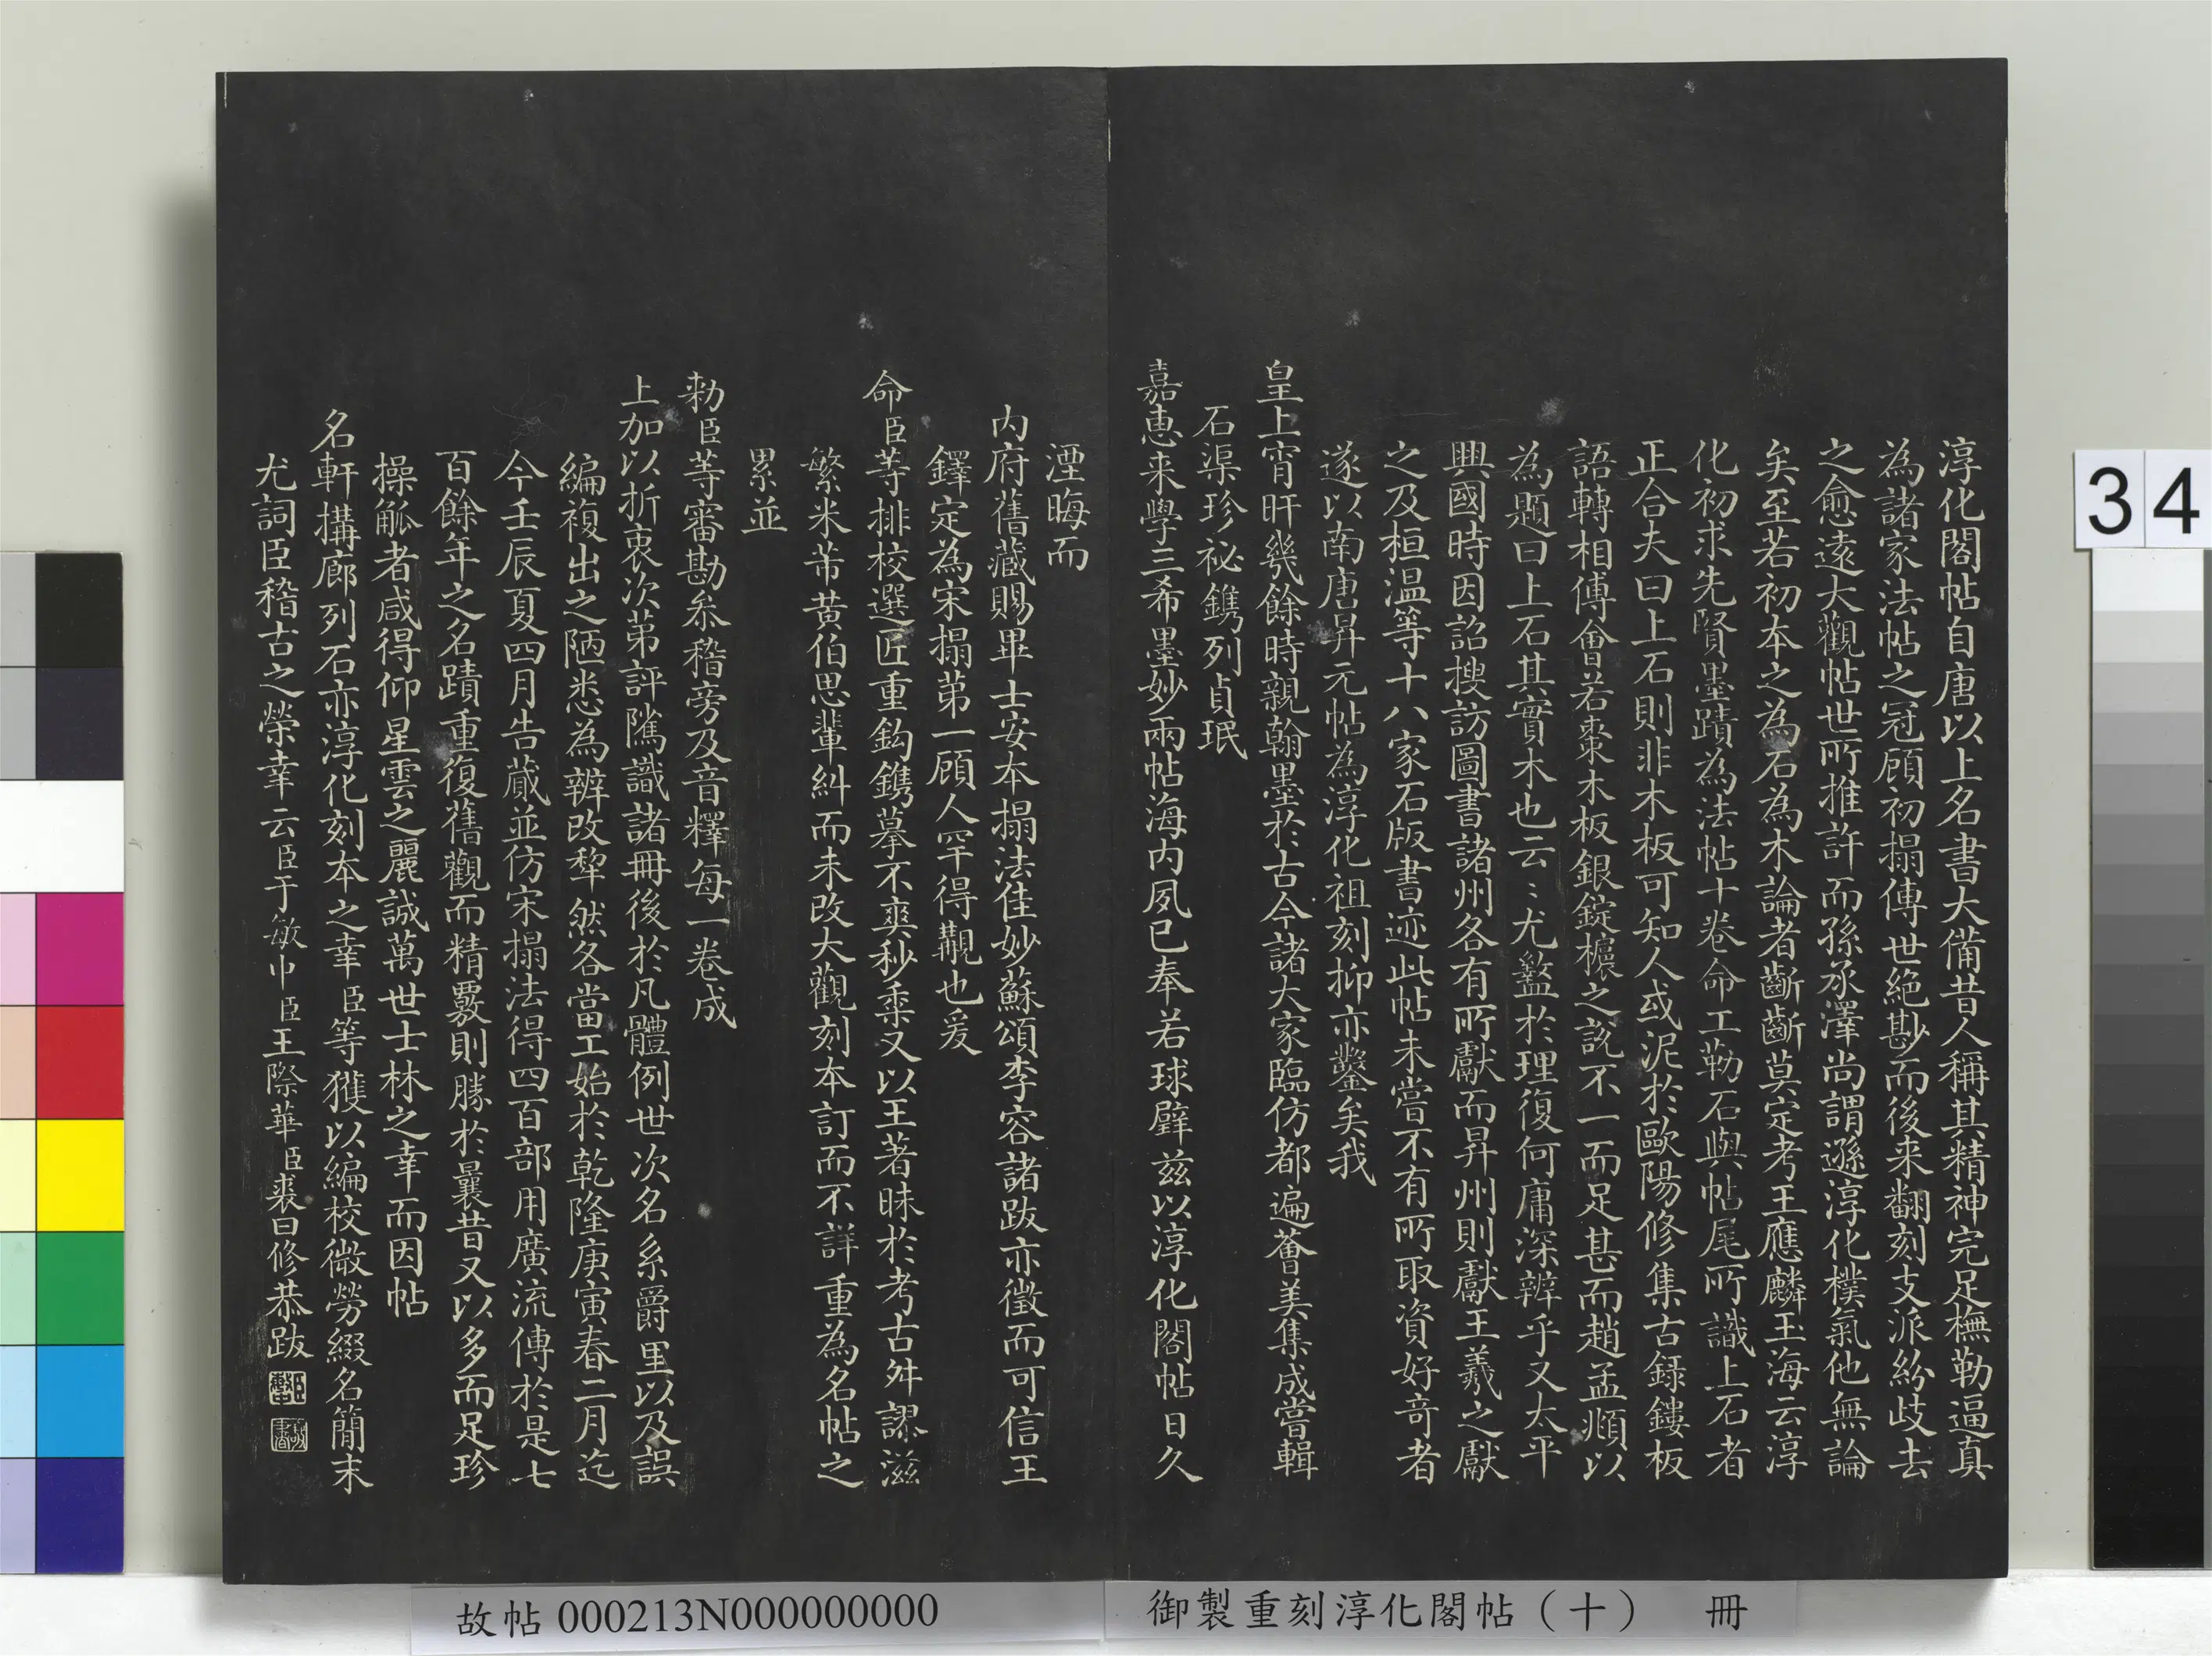 淳化閣帖自唐以上名書大備昔人稱其精神完足橅勒逼真
為諸家法帖之冠顧初搨傳世絕尠而後来翻刻支派紛歧去
之愈遠大觀帖世所推許而孫承澤尚謂遜淳化樸氣他無論
矣至若初本之為石為木論者齗齗莫定考王應麟玉海云淳
化初求先賢墨蹟為法帖十卷命工勒石與帖尾所識上石者
正合夫曰上石則非木板可知人或泥於歐陽修集古録鏤板
語轉相傅會若棗木板銀錠欀之說不一而足甚而趙孟頫以
為題曰上石其實木也云〻尤盭於理復何庸深辨乎又太平
興國時因詔搜訪圖書諸州各有所獻而昇州則獻王羲之獻
之及桓温等十八家石版書迹此帖未嘗不有所取資好奇者
遂以南唐昇元帖為淳化祖刻抑亦鑿矣我
皇上宵旰幾餘時親翰墨於古今諸大家臨仿都遍薈美集成嘗輯
石渠珍祕鐫列貞珉
嘉惠来學三希墨妙兩帖海内夙已奉若球璧兹以淳化閣帖日久
湮晦而
内府舊藏賜畢士安本搨法佳妙蘇頌李容諸跋亦徵而可信王
鐸定為宋搨苐一顧人罕得覯也爰
命臣等排校選匠重鈎鐫摹不爽秒黍又以王著昧於考古舛謬滋
繁米芾黄伯思輩糾而未改大觀刻本訂而不詳重為名帖之
累並
勅臣等審勘叅稽旁及音釋每一卷成
上加以折衷次苐評隲識諸冊後於凡體例世次名系爵里以及誤
編複出之陋悉為辨改犂然各當工始於乾隆庚寅春二月迄
今壬辰夏四月告蕆並仿宋搨法得四百部用廣流傳於是七
百餘年之名蹟重復舊觀而精覈則勝於曩昔又以多而足珍
操觚者咸得仰星雲之麗誠萬世士林之幸而因帖
名軒搆廊列石亦淳化刻本之幸臣等獲以編校微勞綴名簡末
尤詞臣稽古之榮幸云臣于敏中臣王際華臣裘曰修恭跋
34
故帖 000213N000000000
御製重刻淳化閣帖（十） 冊